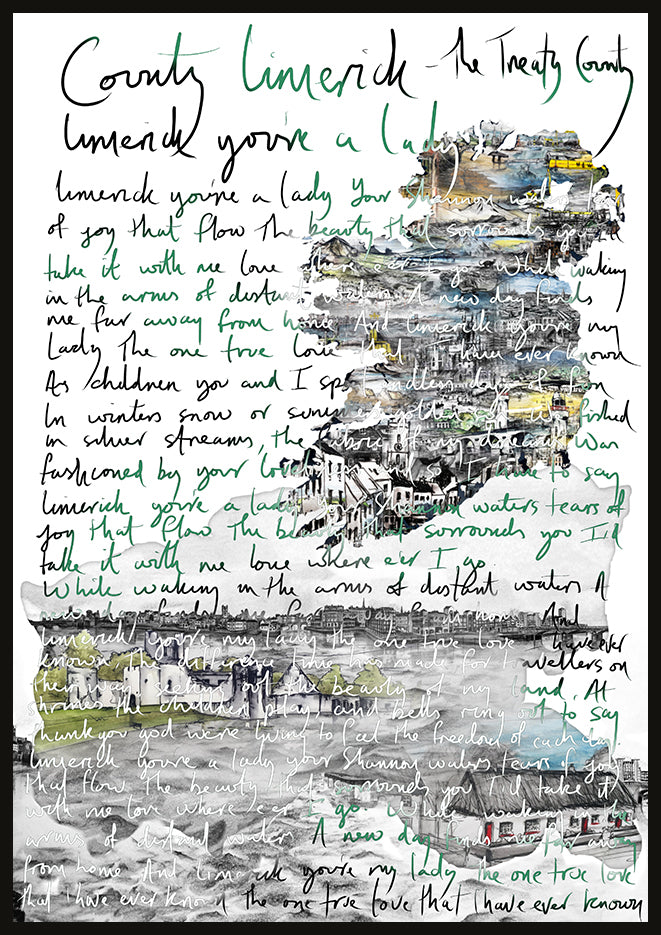 County Limerick - The Treaty County
Limerick you're a lady
Limerick you're a lady Your Shannon waters
of joy that flow The beauty that surrounds you I'll
take it with me love where e'er I go While waking
in the arms of distant waters A new day finds
me far away from home And Limerick you're my
Lady The one true love that I have ever known
As children you and I spent endless days of fun
In winters snow or summers golden sun We fished
in silver streams, the fabric of my dreams Was
fashioned by your loveliness and so I have to say
Limerick you're a lady your Shannon waters tears of
joy that flow The beauty that surrounds you I'll
take it with me love where e'er I go
While waking in the arms of distant waters A
new day finds me far away from home And
Limerick you're my lady the one true love I have ever
known, The difference time has made for travellers on
their way seeking out the beauty of my land. At
shrines the children pray, and bells ring out to say
thankyou god we're living to feel the freedom of each day.
Limerick you're a lady your Shannon waters tears of joy
that flow. The beauty that surrounds you I'll take it
with me love where e'er I go While waking in the
arms of distant waters A new day finds me far away
from home And Limerick you're my lady the one true love
that I have ever known the one true love that I have ever known